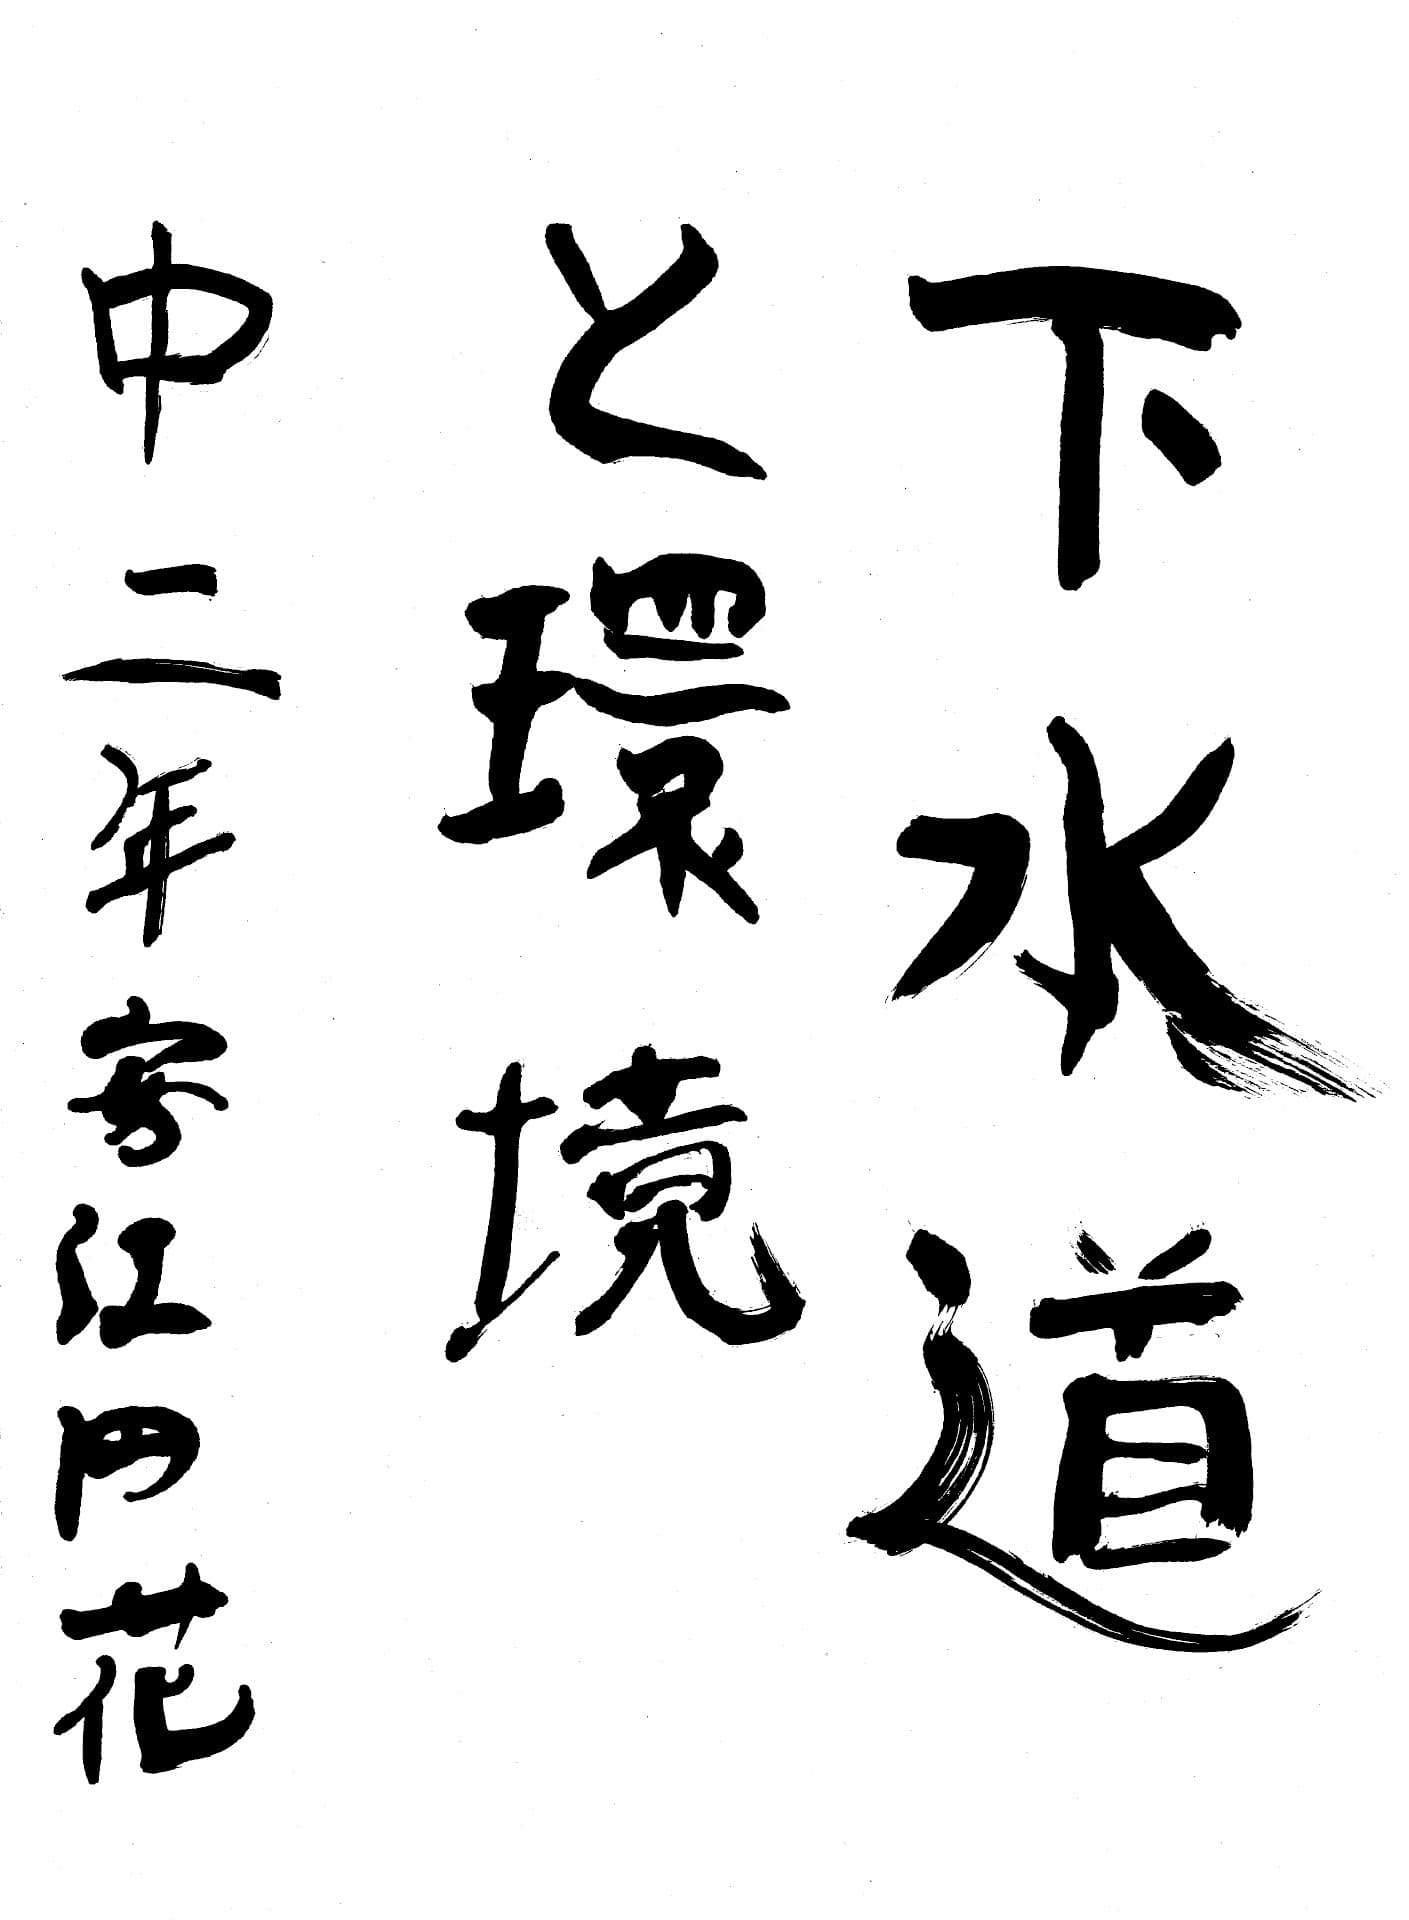 下水道
と環境
中二年 江円花